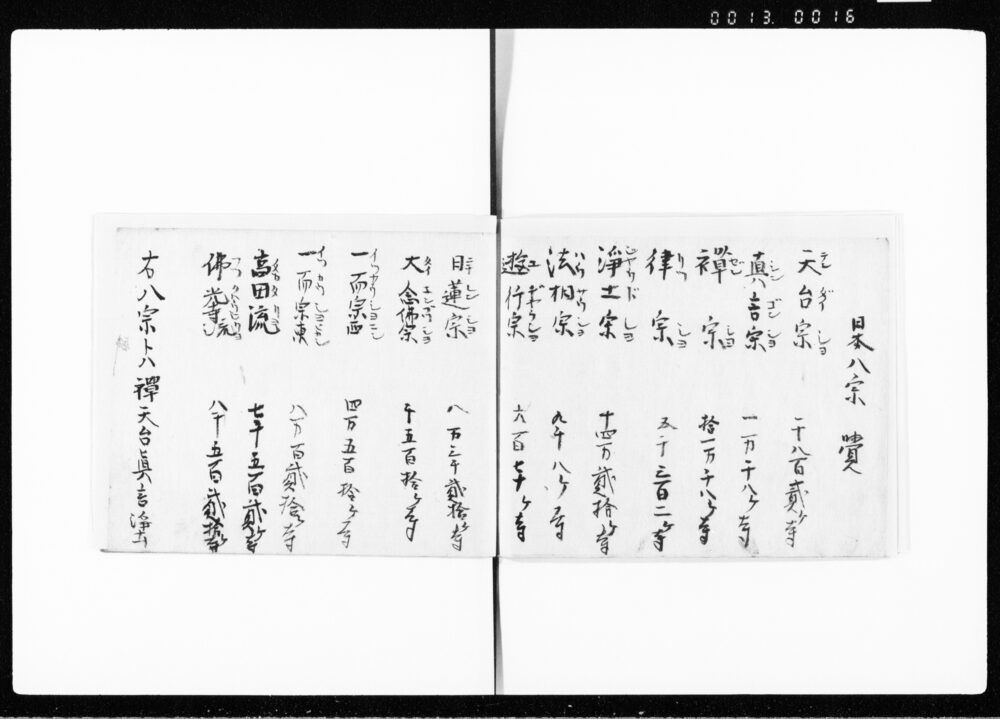 0013. 0016
日本八宗 覺
天台宗 二千八百貳ケ寺
真言宗 一万千八ケ寺
禅宗 拾一万千八ケ寺
律宗 五千三百二ケ寺
浄土宗 十四万貳拾ケ寺
法相宗 九千八ケ寺
遊行宗 六百七十ケ寺
日蓮宗 八万三千貳拾ケ寺
大念佛宗 千五百拾ケ寺
一向宗西 四万五百拾ケ寺
一向宗東 八万百貳拾ケ寺
高田流 七千五百貳ケ寺
佛光寺流 八千五百貳拾ケ寺
右八宗トハ禪天台真言浄土